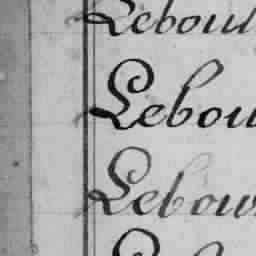 Leboul
Lebou
Lebou